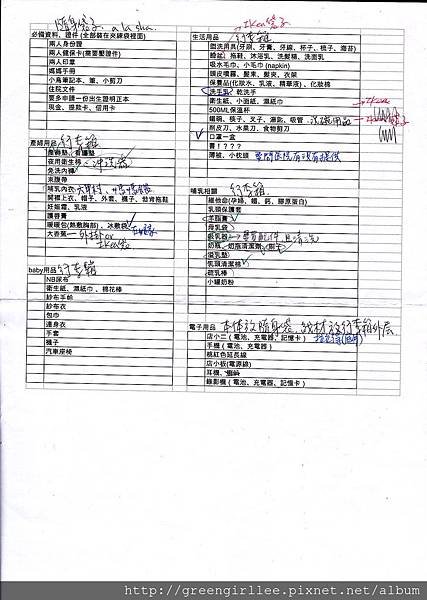 隨身袋子 a la sha.
必備資料、證件 (全部裝在夾鏈袋裡面)
兩人身份證
兩人健保卡(需要壓證件)
兩人印章
媽媽手冊
小角筆記本、筆、小剪刀
住院文件
要多申請一份出生證明正本
現金、提款卡、信用卡
產婦用品 行李箱
產褥墊、看護墊
夜用衛生棉、沖洗器
免洗內褲
束腹帶
哺乳內衣
開襟上衣、帽子、外套、襪子、包肯拖鞋
妊娠霜、乳液
護唇膏
暖暖包(熱敷胸部)、冰敷袋
大香蕉
baby用品 行李箱
NB尿布
衛生紙、濕紙巾、棉花棒
紗布手帕
紗布衣
包巾
連身衣
手套
襪子
汽車座椅
生活用品 行李箱
盥洗用具(牙刷、牙膏、牙線、杯子、梳子、海苔)
臉盆、拖鞋、沐浴乳、洗髮精、洗面乳
吸水毛巾、小毛巾 (napkin)
頭皮噴霧、髮束、髮夾、衣架
保養品(化妝水、乳液、精華液)、化妝棉
洗手乳、乾洗手
衛生紙、小面紙、濕紙巾
500ML保溫杯
鐵碗、筷子、叉子、湯匙、吸管
削皮刀、水果刀、食物剪刀
口罩一盒
書！？？？
薄被、小枕頭
哺乳相關 行李箱
維他命(孕婦、鐵、鈣、膠原蛋白)
乳頭保護套
羊脂膏
母乳袋
吸乳器
奶瓶、奶瓶清潔劑、刷毛
溢乳墊
乳頭清潔棉
疏乳棒
小罐奶粉
電子用品 本体放隨身袋、線材放行李箱外层
店小二 (電池、充電器、記憶卡)
手機 (電池、充電器)
桃紅色延長線
店小板(電源線)
耳機、蝴蝶
錄影機 (電池、充電器、記憶卡)
http://greengirllee.pixnet.net/album